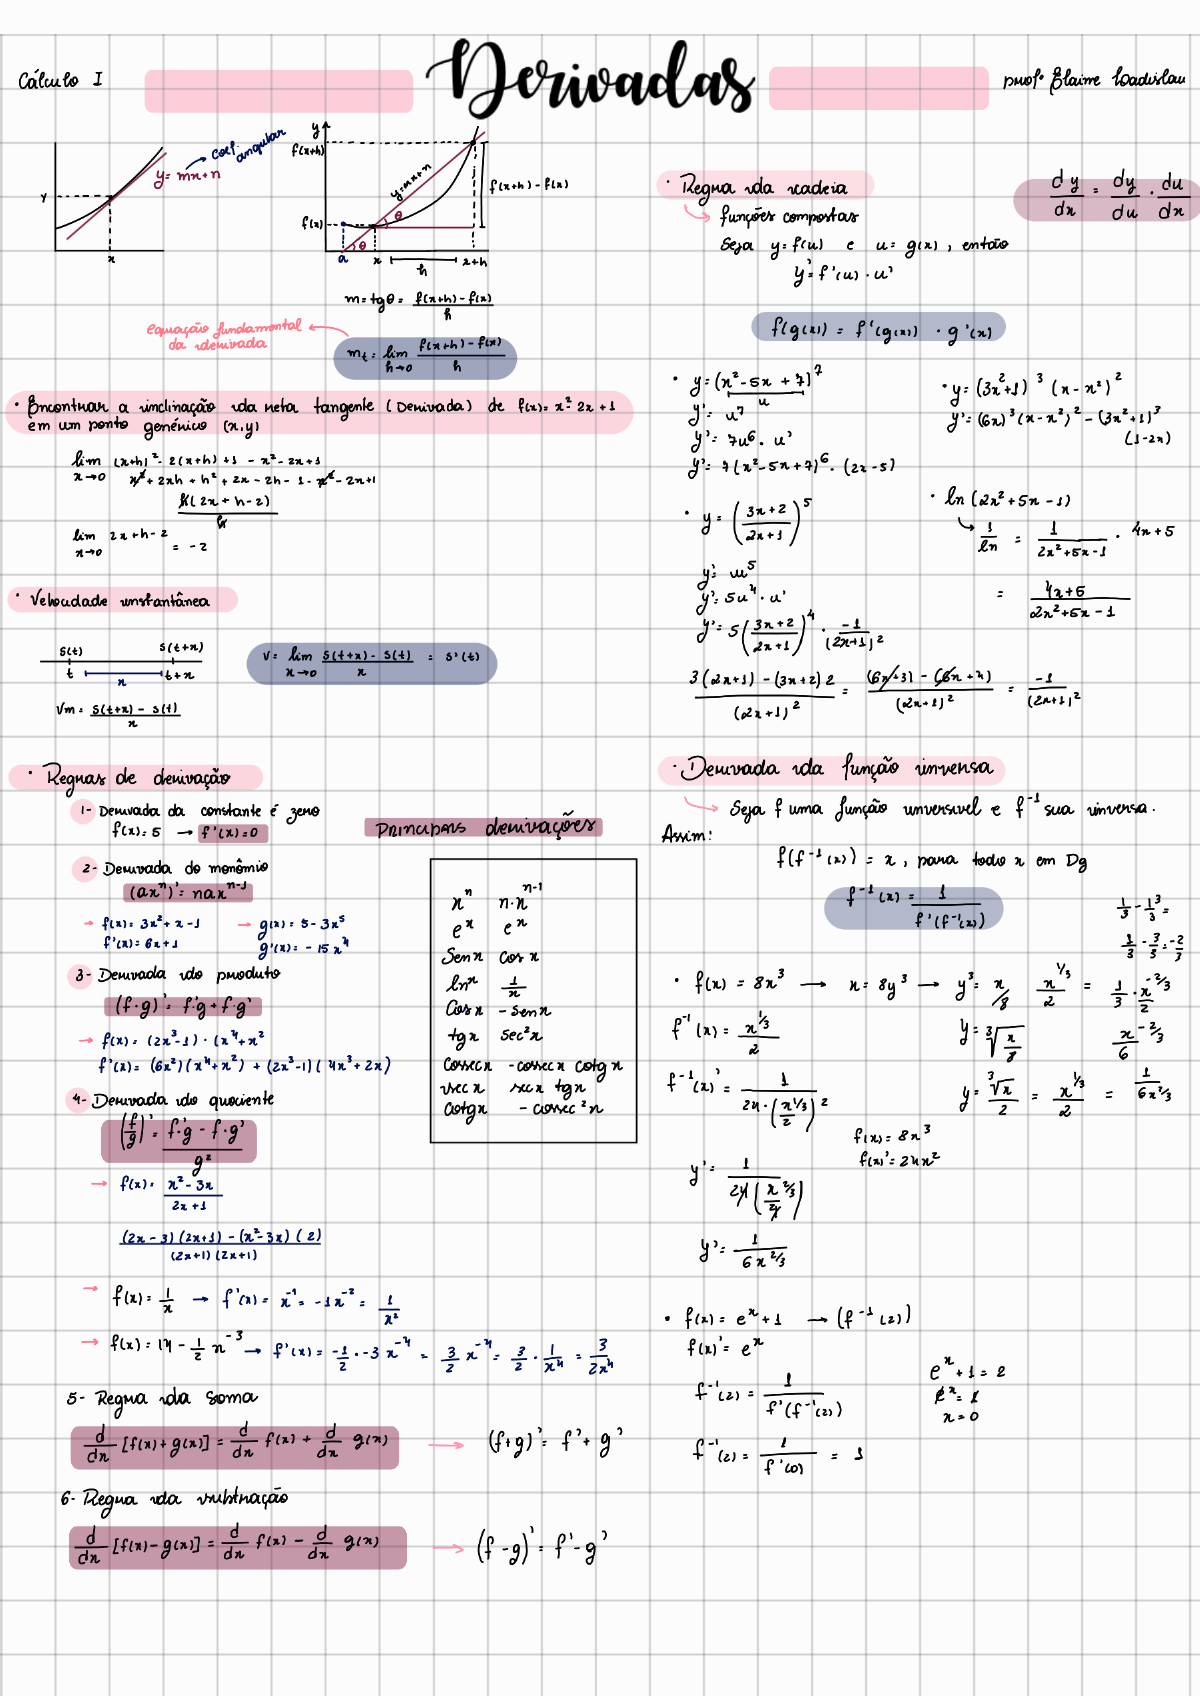 Cálculo I
Derivadas
profª Elaine Ladislau
y
x
y = mx+n
coef. angular
y
f(x+h)
y=mx+n
f(x+h) - f(x)
f(x)
θ
θ
a x x+h
h
m = tgθ = f(x+h) - f(x) / h
equação fundamental
da derivada
mt = lim h→0 f(x+h) - f(x) / h
• Encontrar a inclinação da reta tangente (Derivada) de f(x) = x² - 2x + 1
em um ponto genérico (x,y)
lim x→0 (x+h)² - 2(x+h) + 1 - x² - 2x + 1
x² + 2xh + h² + 2x - 2h - 1 - x² - 2x+1
h(2x + h - 2) / h
lim x→0 2x + h - 2 = -2
• Velocidade instantânea
s(t) s(t+x)
t x t+x
Vm = s(t+x) - s(t) / x
v = lim x→0 s(t+x) - s(t) / x = s'(t)
• Regras de derivação
1- Derivada da constante é zero
f(x) = 5 → f'(x) = 0
2- Derivada do monômio
(axⁿ)' = naxⁿ⁻¹
→ f(x) = 3x² + x - 1
f'(x) = 6x + 1
→ g(x) = 5 - 3x⁵
g'(x) = - 15x⁴
3- Derivada do produto
(f·g)' = f'g + f·g'
→ f(x) = (2x³-1) · (x⁴+x²
f'(x) = (6x²)(x⁴+x²) + (2x³-1)(4x³+2x)
4- Derivada do quociente
(f/g)' = f'·g - f·g' / g²
→ f(x) = x² - 3x / 2x + 1
(2x - 3)(2x+1) - (x² - 3x)(2) / (2x+1)(2x+1)
→ f(x) = 1/x → f'(x) = x⁻¹ = -1x⁻² = 1/x²
→ f(x) = 14 - 1/2 x⁻³ → f'(x) = -1/2 · -3 x⁻⁴ = 3/2 x⁻⁴ = 3/2 · 1/x⁴ = 3/2x⁴
5- Regra da soma
d/dx [f(x) + g(x)] = d/dx f(x) + d/dx g(x) → (f+g)' = f' + g'
6- Regra da subtração
d/dx [f(x) - g(x)] = d/dx f(x) - d/dx g(x) → (f - g)' = f' - g'
Principais derivações
xⁿ n·xⁿ⁻¹
eˣ eˣ
Sen x cos x
lnˣ 1/x
Cos x - sen x
tg x sec²x
Cossec x - cossec x cotg x
sec x sec x tg x
Cotg x - cossec²x
• Regra da cadeia
→ funções compostas
dy/dx = dy/du · du/dx
Seja y = f(u) e u = g(x), então
y' = f'(u) · u'
f(g(x)) = f'(g(x)) · g'(x)
• y = (x² - 5x + 7)⁷
u
y' = u⁷
y' = 7u⁶ · u'
y' = 7(x² - 5x + 7)⁶ · (2x - 5)
• y = (3x²+1)³ (x - x²)²
y' = (6x)³ (x - x²)² - (3x²+1)³
(1-2x)
• y = (3x+2 / 2x+1)⁵
y' = u⁵
y' = 5u⁴ · u'
y' = 5(3x+2 / 2x+1)⁴ · -1 / (2x+1)²
• ln (2x² + 5x - 1)
→ 1/ln = 1 / 2x²+5x-1 · 4x + 5
= 4x+5 / 2x²+5x-1
3(2x+1) - (3x+2)2 / (2x+1)² = (6x+3) - (6x+4) / (2x+1)² = -1 / (2x+1)²
• Derivada da função inversa
→ Seja f uma função inversível e f⁻¹ sua inversa.
Assim:
f(f⁻¹(x)) = x, para todo x em Dg
f⁻¹(x) = 1 / f'(f⁻¹(x))
1/3 - 1³/3 =
1/3 - 3/3 = -2/3
• f(x) = 8x³ → x = 8y³ → y³ = x/8 x^1/3 / 2 = 1/3 · x^-2/3 / 2
f⁻¹(x) = x^1/3 / 2
y = ³√x/8
x^-2/3 / 6
f⁻¹(x)' = 1 / 24·(x^1/3 / 2)²
y = ³√x / 2 = x^1/3 / 2 = 1 / 6x^2/3
f(x) = 8x³
f(x)' = 24x²
y' = 1 / 24(x^2/3 / 4)
y' = 1 / 6x^2/3
• f(x) = eˣ + 1 → (f⁻¹(2))
f(x)' = eˣ
f⁻¹(2) = 1 / f'(f⁻¹(2))
eˣ + 1 = 2
eˣ = 1
x = 0
f⁻¹(2) = 1 / f'(0) = 1